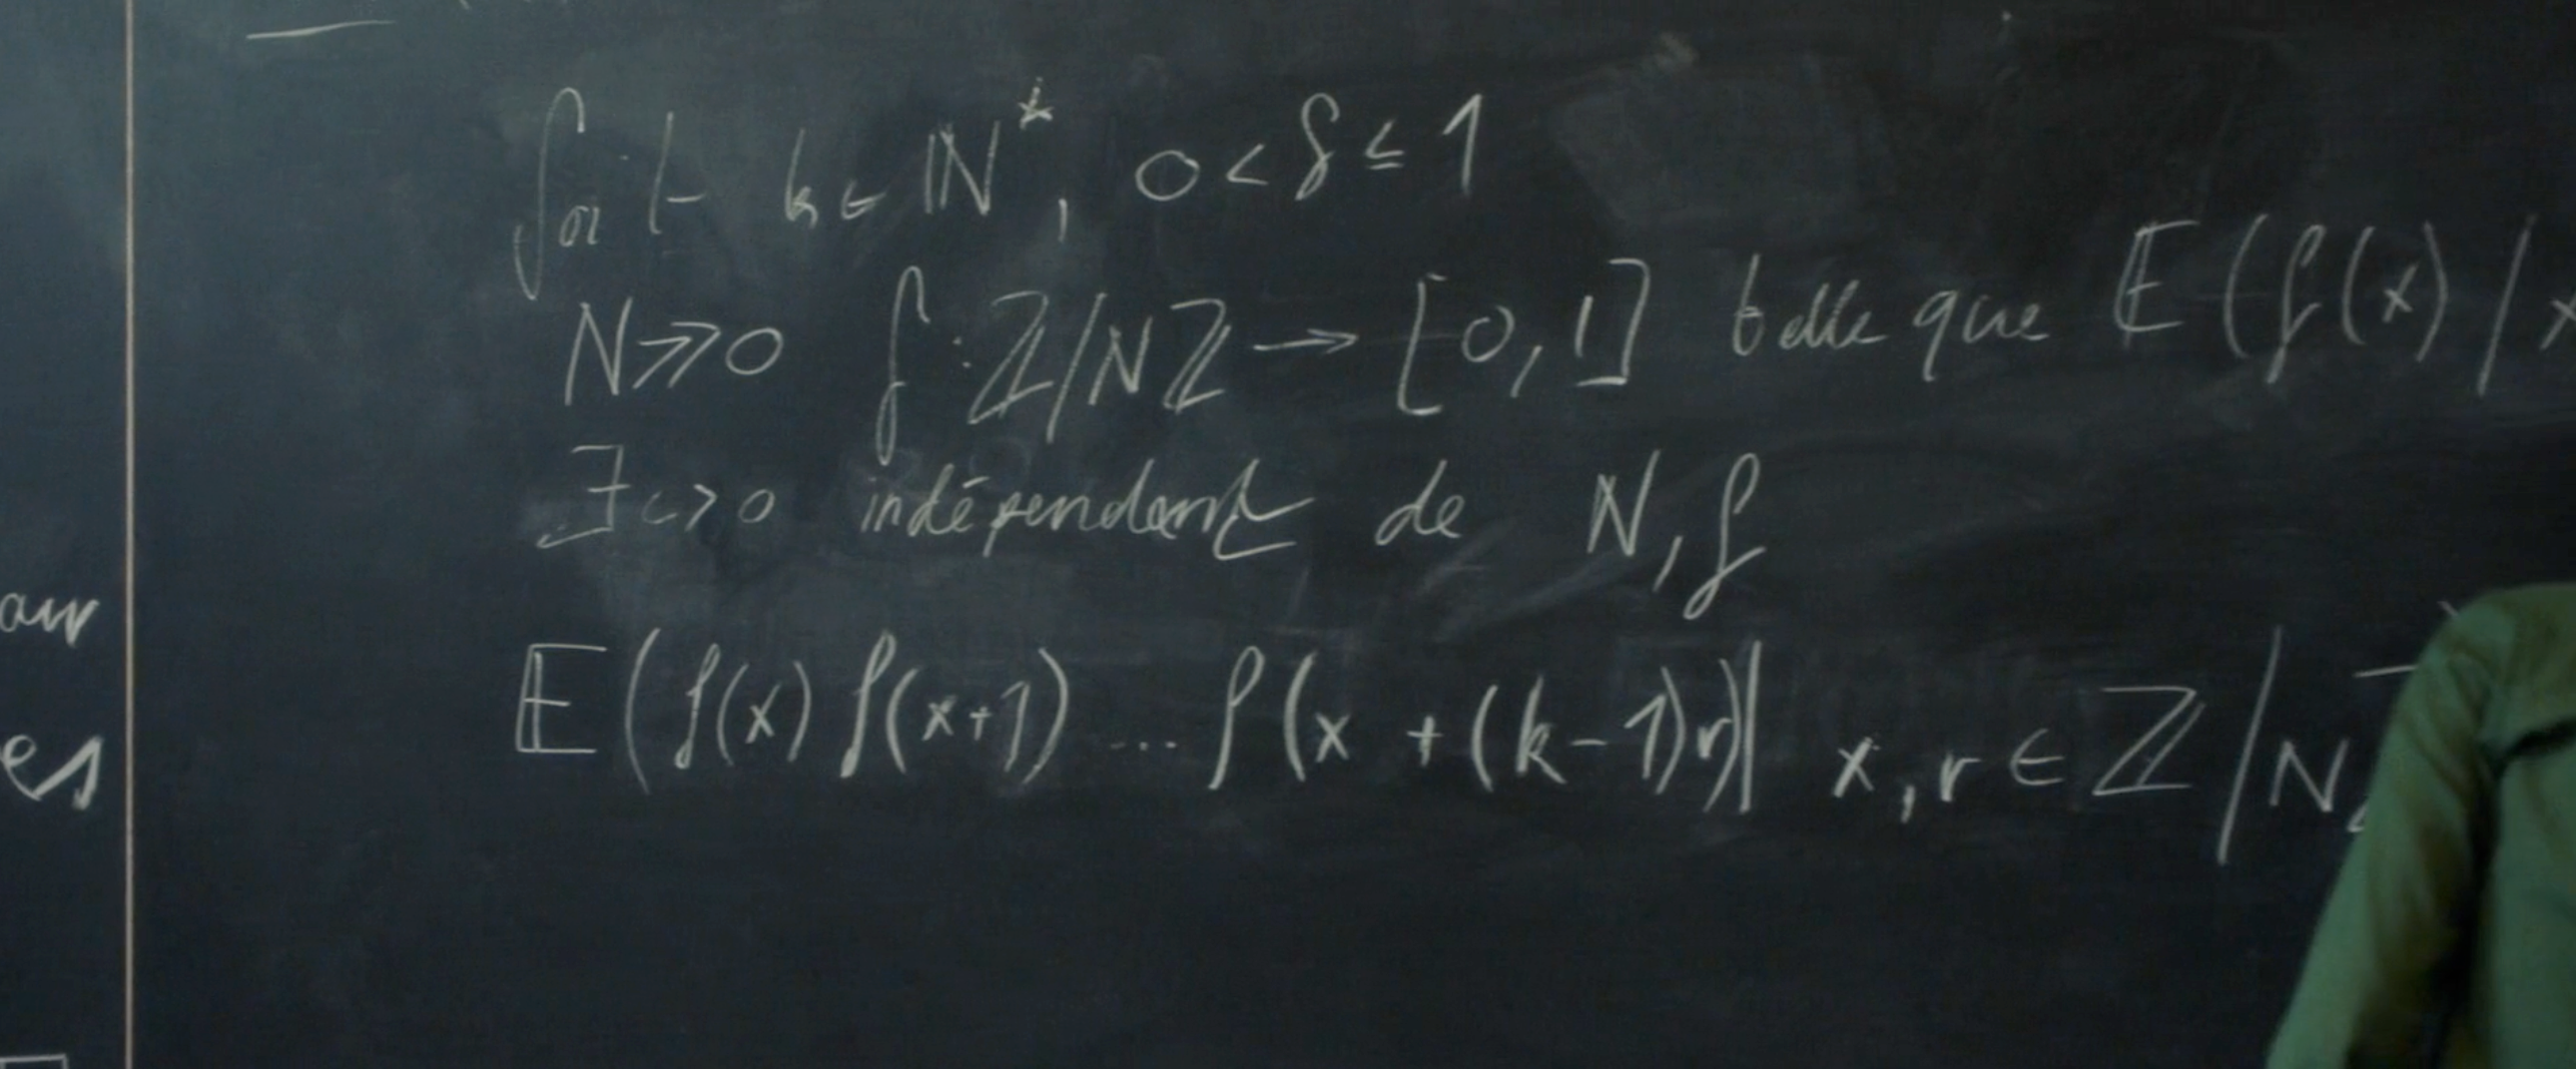 Soit k ∈ ℕ*, 0 < δ ≤ 1
N ≫ 0 f : ℤ/Nℤ → [0,1] telle que 𝔼(f(x) | x
∃ c > 0 indépendant de N, f
𝔼(f(x) f(x+1) ... f(x + (k-1)r) | x, r ∈ ℤ/Nℤ
au
es